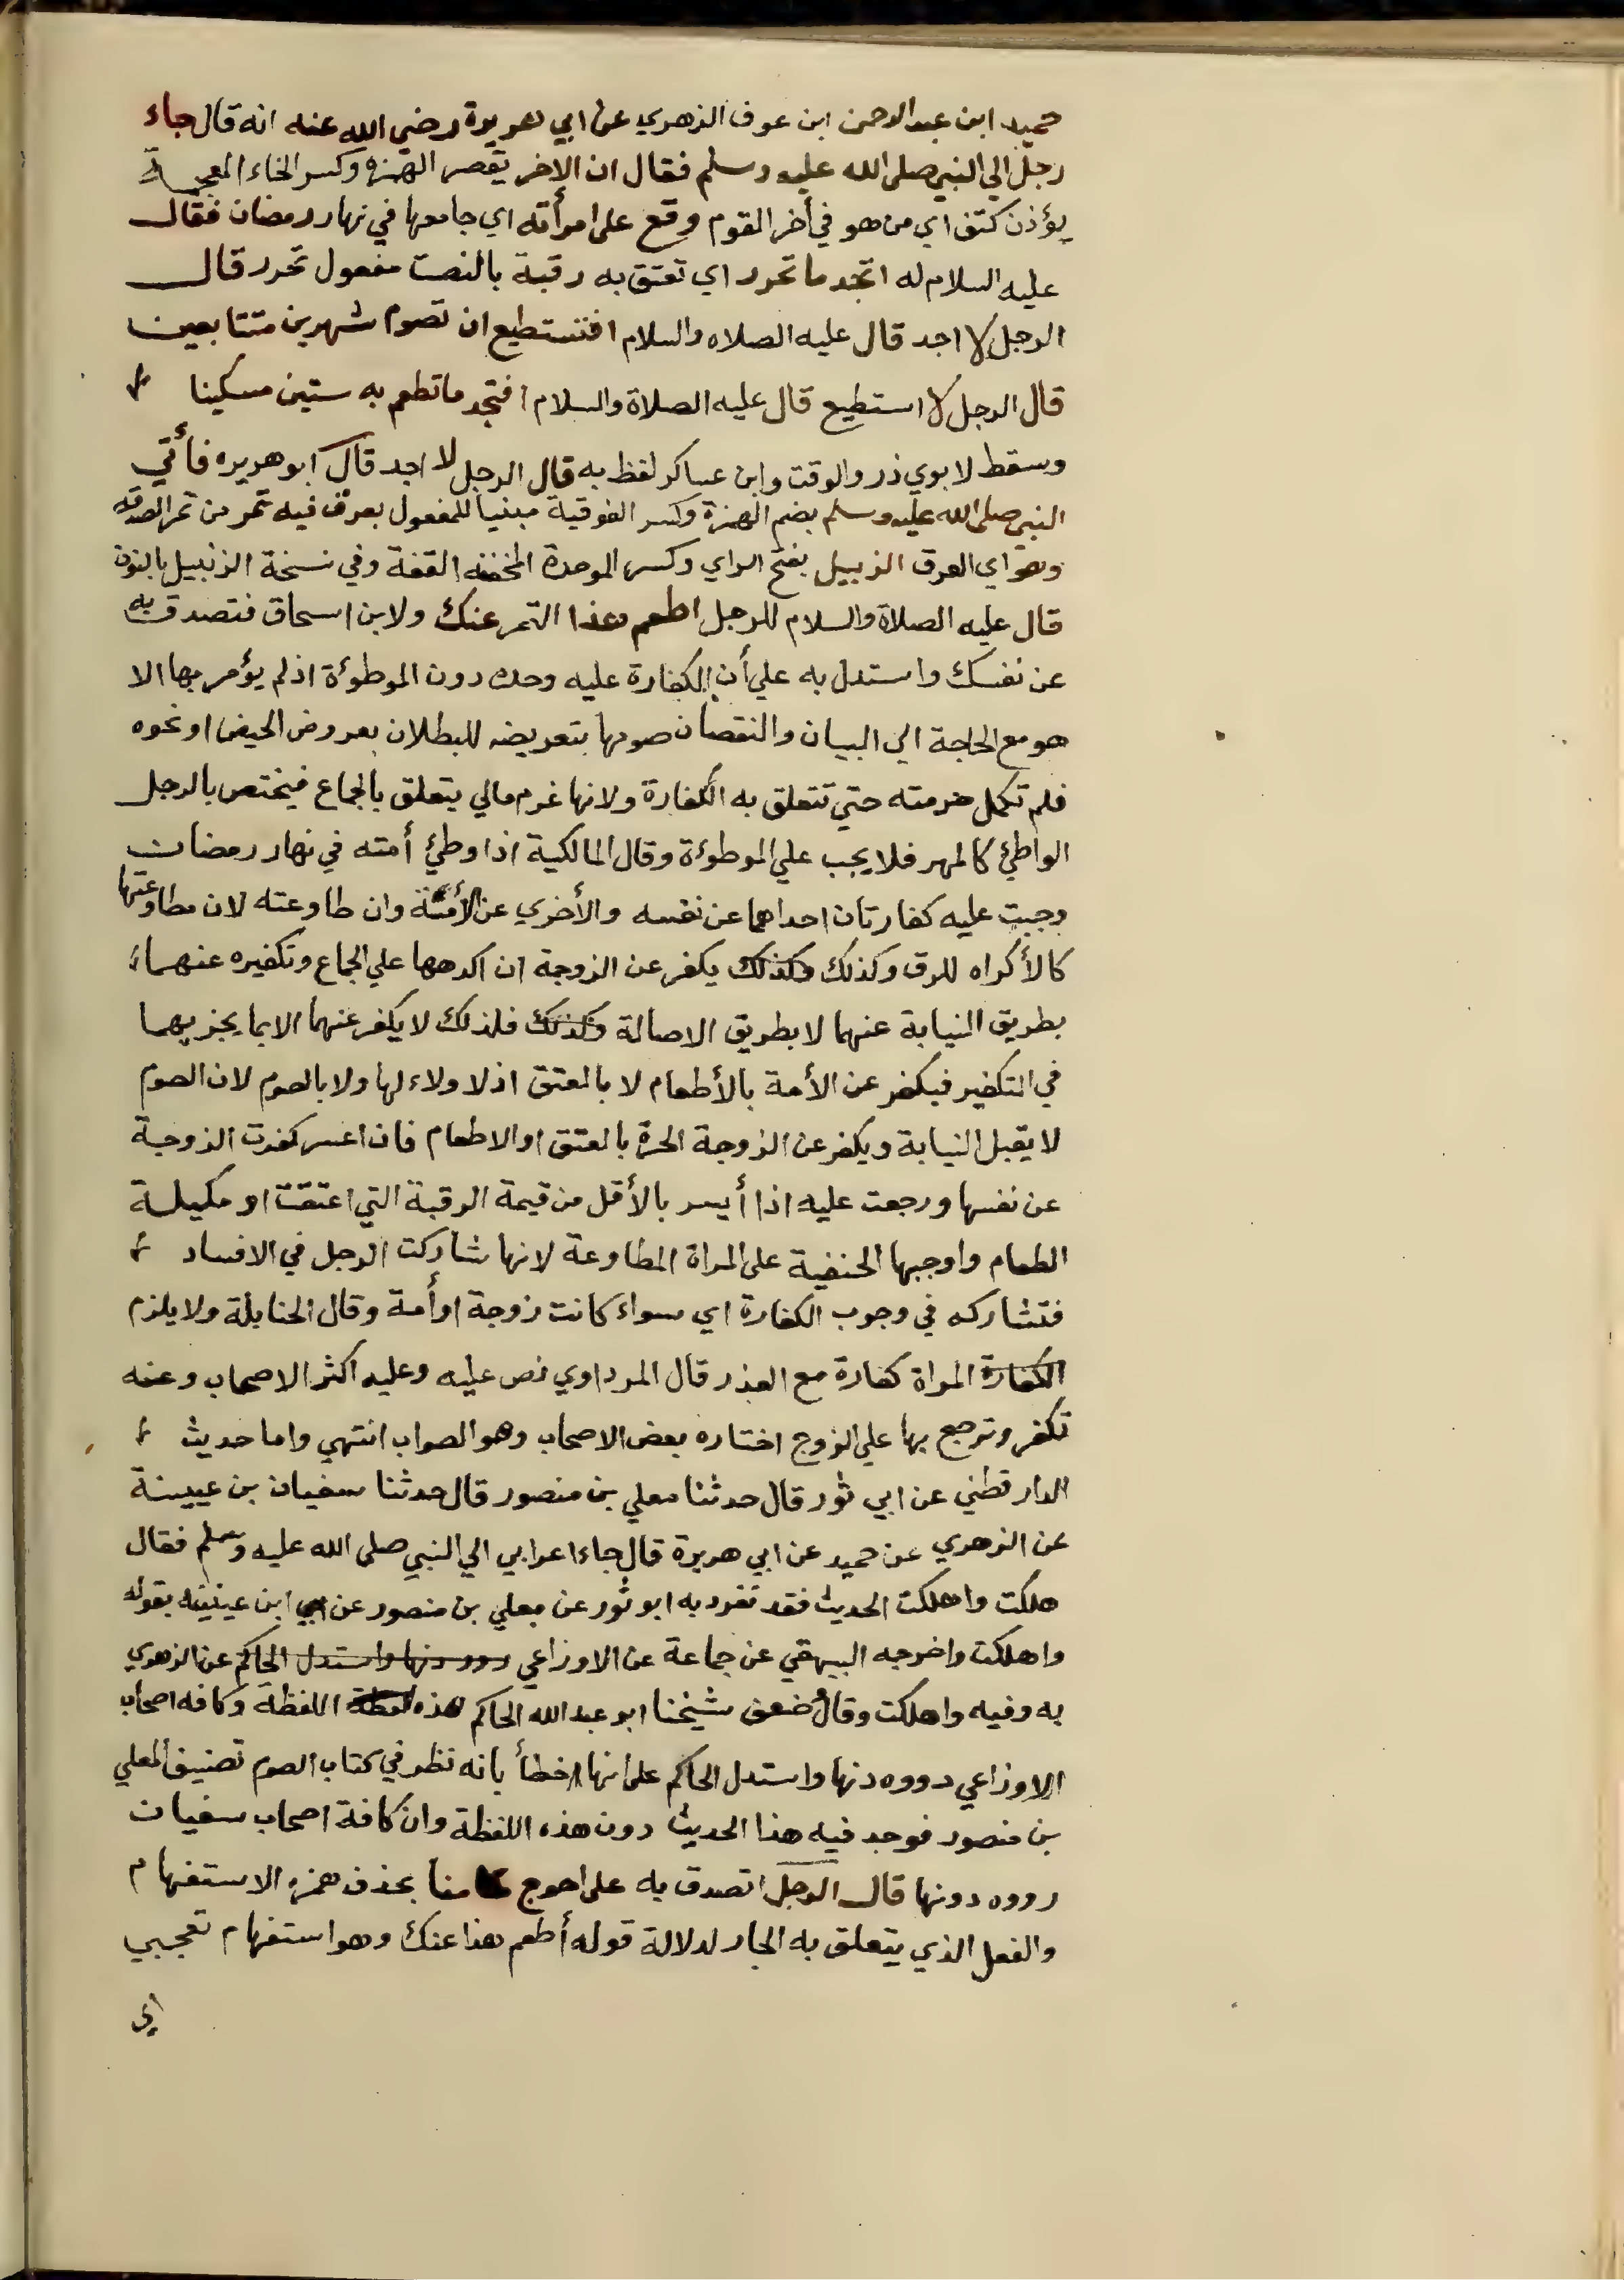 حميد ابن عبد الرحمن ابن عوف الزهري عن ابي هريرة رضي الله عنه انه قال جاء
رجل الي النبي صلى الله عليه وسلم فقال ان الاخر بقصر الهمزه وكسر الخاء المعجمة
بوزن كتف اي من هو في أخر القوم وقع على امرأته اي جامعها في نهار رمضان فقال
عليه السلام له اتجد ما تحرر اي تعتق به رقبة بالنصب مفعول تحرر قال
الرجل لا اجد قال عليه الصلاه والسلام افتستطيع ان تصوم شهرين متتابعين
قال الرجل لا استطيع قال عليه الصلاة والسلام افتجد ما تطعم به ستين مسكينا
وسقط لابوي ذر والوقت وابن عساكر لفظ به قال الرجل لا اجد قال ابو هريره فأتي
النبي صلى الله عليه وسلم بضم الهمزة وكسر الفوقية مبنيا للمفعول بعرق فيه تمر من تمر الصدقه
وهو اي العرق الزبيل بفتح الزاي وكسر الموحدة المخففه القفة وفي نسخة الزنبيل بالنون
قال عليه الصلاة والسلام للرجل اطعم هذا التمر عنك ولابن اسحاق فتصدق به
عن نفسك واستدل به علي أن الكفارة عليه وحده دون الموطوئة اذ لم يؤمر بها الا
هو مع الحاجة الي البيان والنقصان صومها بتعريضه للبطلان بعروض الحيض او نحوه
فلم تكمل حرمته حتي تتعلق به الكفارة ولانها غرم مالي يتعلق بالجماع فيختص بالرجل
الواطئ كالمهر فلا يجب علي الموطوءة وقال المالكية اذا وطئ أمته في نهار رمضان
وجبت عليه كفارتان احداهما عن نفسه والأخري عن الأمة وان طاوعته لان مطاوعتها
كالأكراه للرق وكذلك وكذلك يكفر عن الزوجة ان اكرهها علي الجماع وتكفيره عنهما
بطريق النيابة عنهما لا بطريق الاصالة وكذلك فلذلك لا يكفر عنهما الا بما يجزيهما
في التكفير فيكفر عن الأمة بالأطعام لا بالعتق اذ لا ولاء لها ولا بالصوم لان الصوم
لا يقبل النيابة ويكفر عن الزوجة الحرة بالعتق او الاطعام فان اعسر كفرت الزوجة
عن نفسها ورجعت عليه اذا أيسر بالأقل من قيمة الرقبة التي اعتقت او مكيلة
الطعام واوجبها الحنفية على المراة المطاوعة لانها شاركت الرجل في الافساد
فتشاركه في وجوب الكفارة اي سواء كانت زوجة او أمة وقال الحنابلة ولا يلزم
الكفارة المراة كفارة مع العذر قال المرداوي نص عليه وعليه اكثر الاصحاب وعنه
تكفر وترجع بها علي الزوج اختاره بعض الاصحاب وهو الصواب انتهي واما حديث
الدارقطني عن ابي ثور قال حدثنا معلي بن منصور قال حدثنا سفيان بن عيينة
عن الزهري عن حميد عن ابي هريرة قال جاء اعرابي الي النبي صلى الله عليه وسلم فقال
هلكت واهلكت الحديث فقد تفرد به ابو ثور عن معلي بن منصور عن ابن عيينه بقوله
واهلكت واخرجه البيهقي عن جماعة عن الاوزاعي دونها واستدل الحاكم عن الزهري
به وفيه واهلكت وقال ضعف شيخنا ابو عبد الله الحاكم هذه لفظة اللفظة وكافه اصحاب
الاوزاعي رووه دنها واستدل الحاكم على انها خطأ بانه نظر في كتاب الصوم تصنيف المعلي
بن منصور فوجد فيه هذا الحديث دون هذه اللفظة وان كافة اصحاب سفيان
رووه دونها قال الرجل اتصدق به على احوج منا بحذف همزه الاستفهام
والفعل الذي يتعلق به الجار لدلالة قوله أطعم هذا عنك وهو استفهام تعجبي
اي